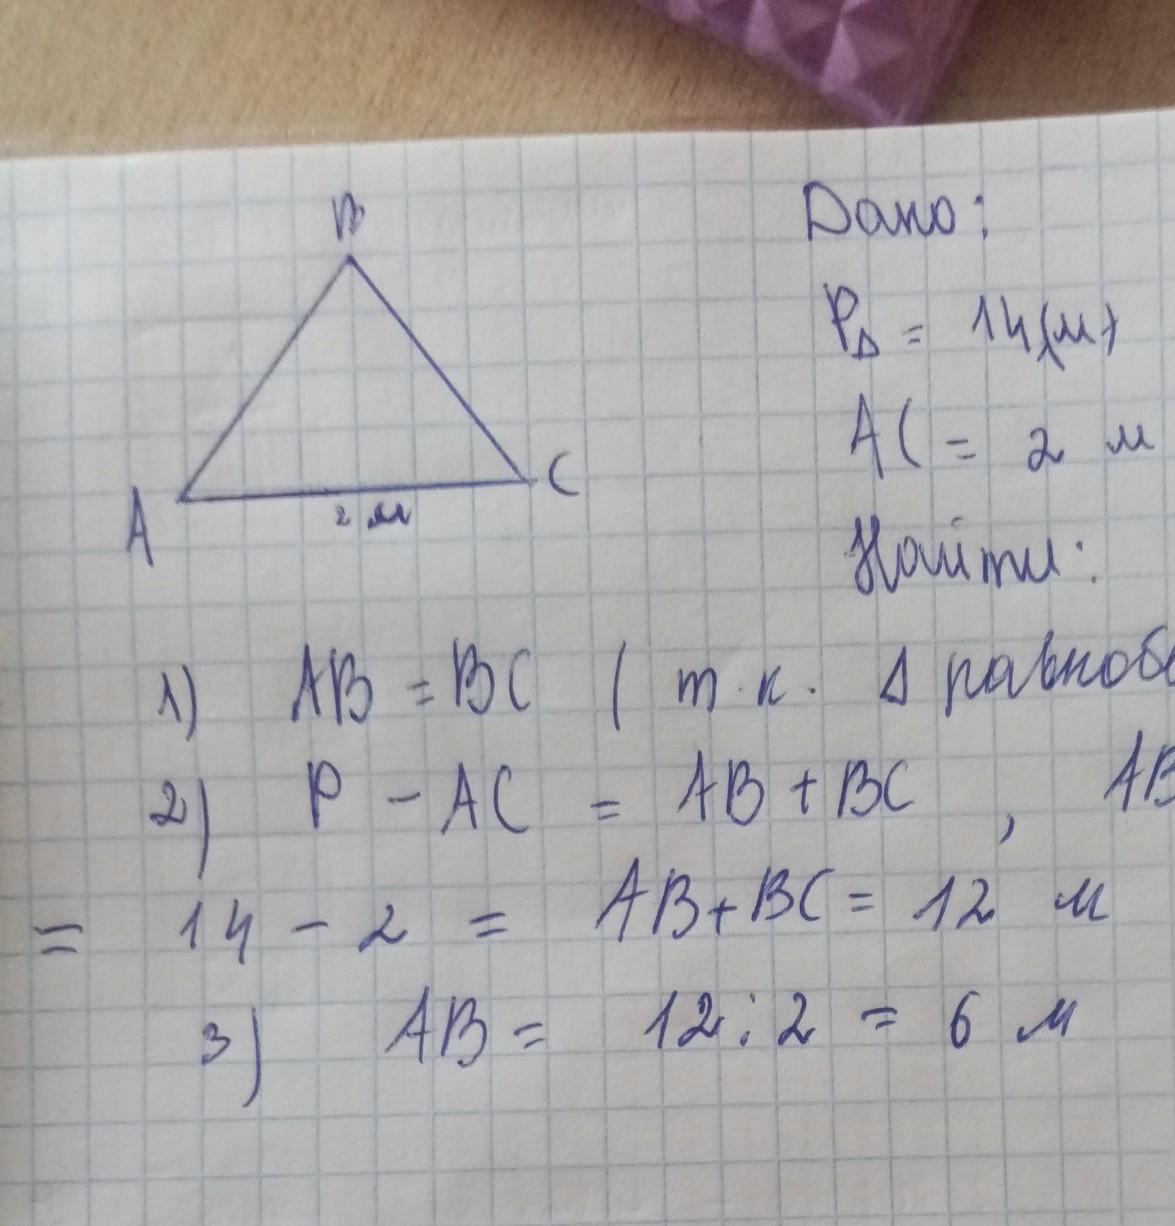 B
Дано:
P∆ = 14(м)
AC = 2 м
A
C
2 м
Найти:
1) AB = BC ( т.к. ∆ равноб
2) P - AC = AB + BC , AB
= 14 - 2 = AB+BC = 12 м
3) AB = 12:2 = 6 м